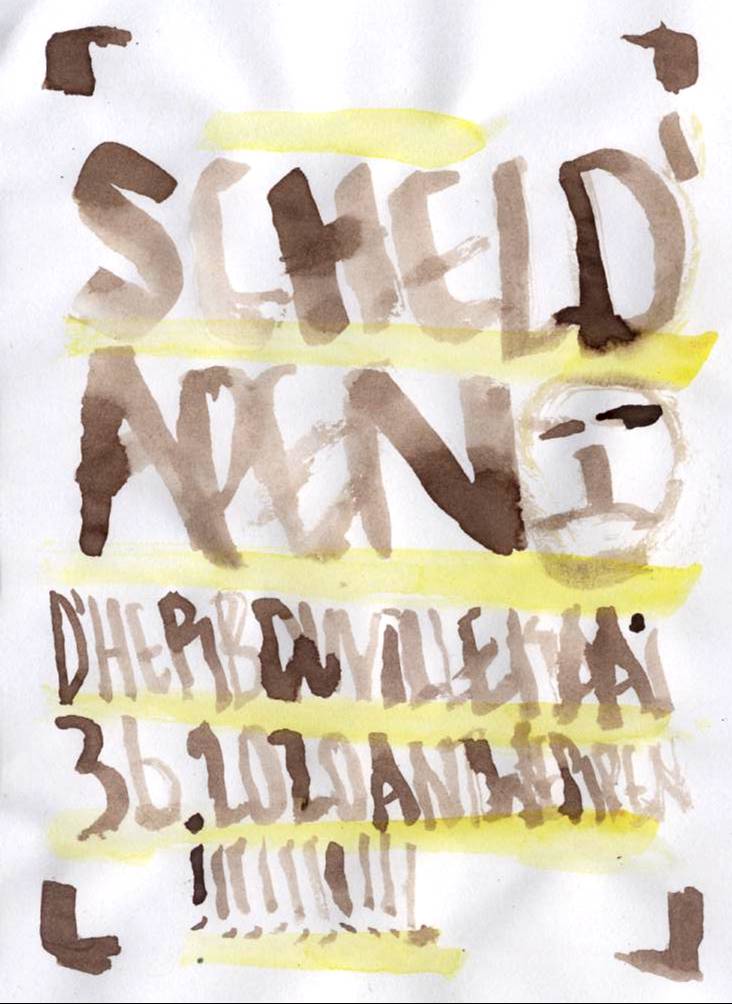 SCHELD'
APEN
D'HERBOUVILLEKAAI
36.2020 ANTWERPEN
!!!!!!!!!!!